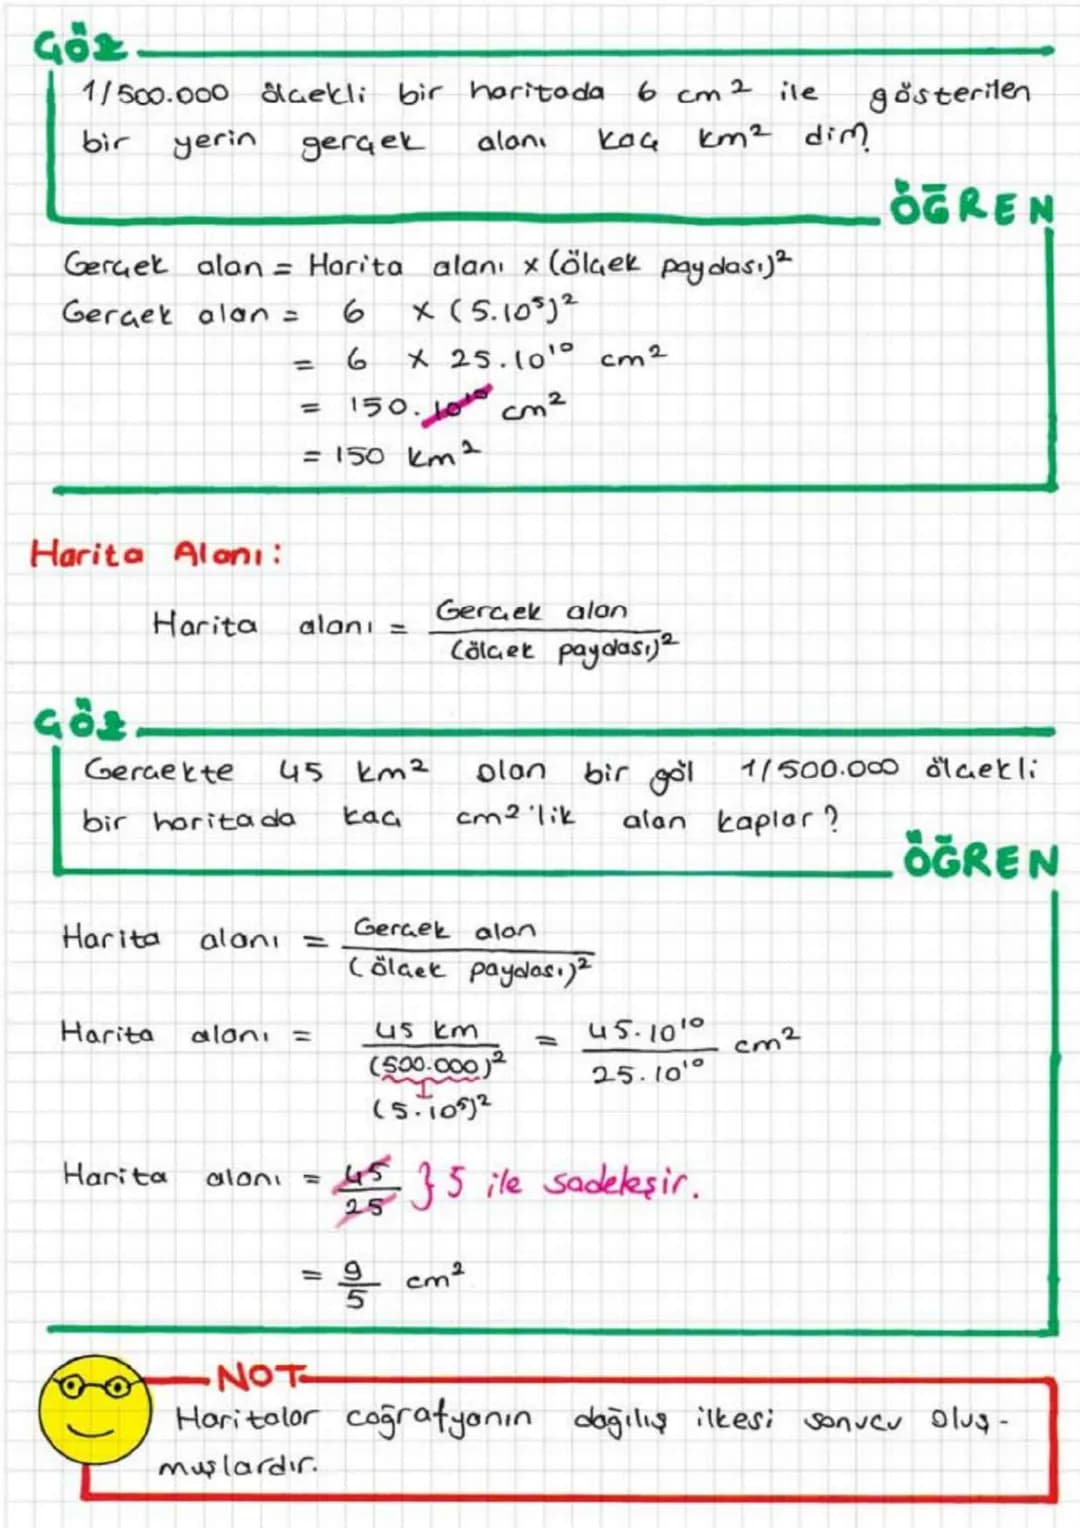 ÇÖZ
1/500.000 ölçekli bir haritada 6 cm² ile gösterilen
bir yerin gerçek alanı kaç km² dir?
ÖĞREN
Gerçek alan = Harita alanı x (ölçek paydası)²
Gerçek alan = 6 x (5.10⁵)²
= 6 x 25.10¹⁰ cm²
= 150.10¹⁰ cm²
= 150 km²
Harita Alanı:
Harita alanı = Gerçek alan
(ölçek paydası)²
ÇÖZ
Gerçekte 45 km² olan bir göl 1/500.000 ölçekli
bir haritada kaç cm²'lik alan kaplar?
ÖĞREN
Harita alanı = Gerçek alan
(ölçek paydası)²
Harita alanı = 45 km = 45.10¹⁰ cm²
(500.000)² 25.10¹⁰
(5.10⁵)²
Harita alanı = 45 } 5 ile sadeleşir.
25
= 9 cm²
5
NOT
Haritalar coğrafyanın dağılış ilkesi sonucu oluş-
muşlardır.